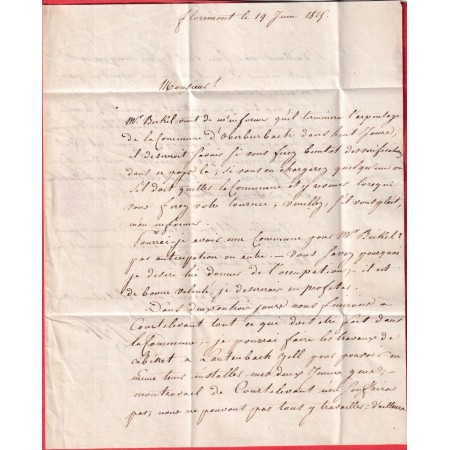 Floremont le 19 Juin 1825.
Monsieur!
Mr. Beikel vient de m'informer qu'il terminera l'arpentage
de la Commune d'Oberburbach dans huit Jours,
il desirerait savoir si vous ferez bientot des verifications
dans ce pays là; si vous en chargerez quelqu'un ou
s'il doit quitter la Commune et y revenir lorsque
vous ferez votre tournée; veuillez, s'il vous plait,
m'en informer.
Pourrai-je avoir une Commune pour Mr. Beikel?
par anticipation ou autre. — Vous savez pourquoi
je desire lui donner de l'occupation; — il est
de bonne volonté, je desirerais en profiter.
Dans deux ou trois jours nous aurons à
Courtelevant tout ce que doit etre fait dans
la Commune; — je pourrai faire les travaux de
cabinet a Lautenback Zell pour pouvoir en
même tems installer mes deux Jeunes gens; —
mon travail de Courtelevant n'en souffrira
pas; nous ne pouvons pas tous y travailler; d'ailleurs